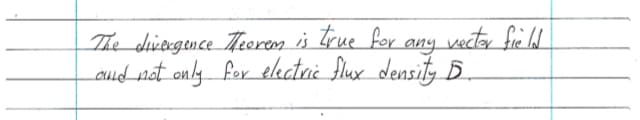 The divergence Teorem is true for any vector field
and not only for electric flux density D.